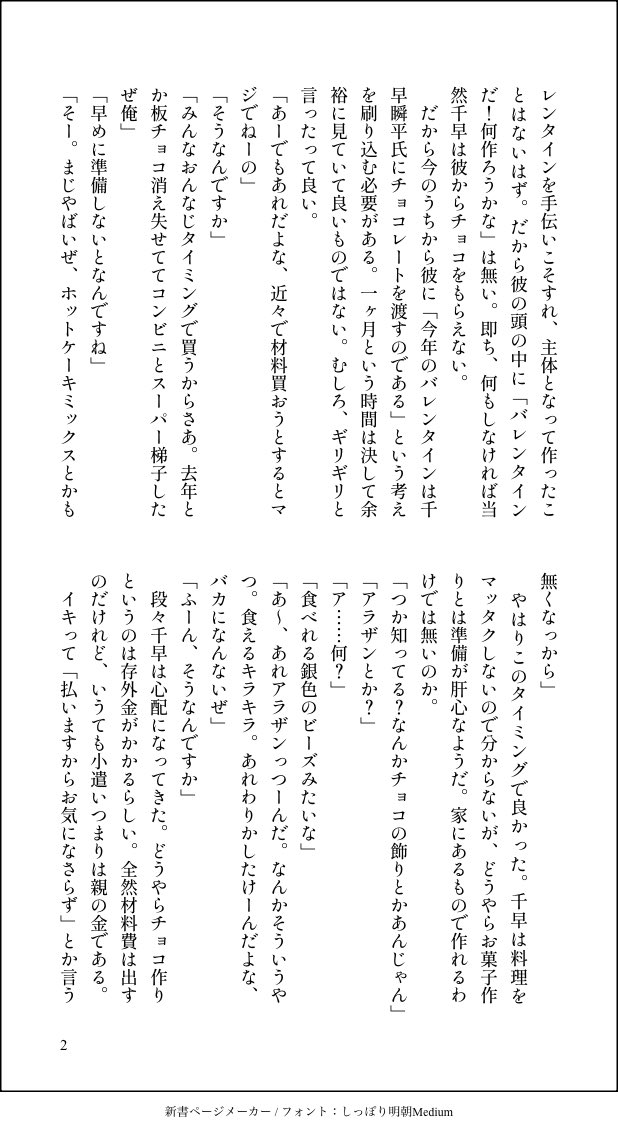 レンタインを手伝いこそすれ、主体となって作ったこ
とはないはず。だから彼の頭の中に「バレンタイン
だ！何作ろうかな」は無い。即ち、何もしなければ当
然千早は彼からチョコをもらえない。
　だから今のうちから彼に「今年のバレンタインは千
早瞬平氏にチョコレートを渡すのである」という考え
を刷り込む必要がある。一ヶ月という時間は決して余
裕に見ていて良いものではない。むしろ、ギリギリと
言ったって良い。
「あーでもあれだよな、近々で材料買おうとするとマ
ジでねーの」
「そうなんですか」
「みんなおんなじタイミングで買うからさあ。去年と
か板チョコ消え失せててコンビニとスーパー梯子した
ぜ俺」
「早めに準備しないとなんですね」
「そー。まじやばいぜ、ホットケーキミックスとかも
無くなっから」
　やはりこのタイミングで良かった。千早は料理を
マッタクしないので分からないが、どうやらお菓子作
りとは準備が肝心なようだ。家にあるもので作れるわ
けでは無いのか。
「つか知ってる？なんかチョコの飾りとかあんじゃん」
「アラザンとか？」
「ア……何？」
「食べれる銀色のビーズみたいな」
「あ〜、あれアラザンっつーんだ。なんかそういうや
つ。食えるキラキラ。あれわりかしたけーんだよな、
バカになんないぜ」
「ふーん、そうなんですか」
　段々千早は心配になってきた。どうやらチョコ作り
というのは存外金がかかるらしい。全然材料費は出す
のだけれど、いうても小遣いつまりは親の金である。
　イキって「払いますからお気になさらず」とか言う
2
新書ページメーカー / フォント：しっぽり明朝Medium